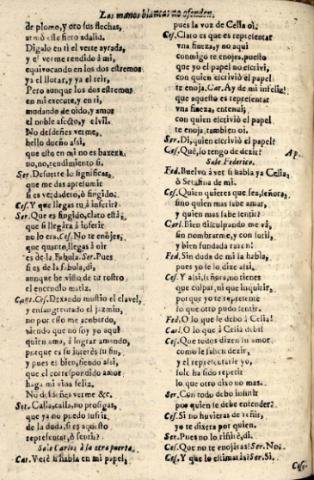 Las manos blancas no ofenden.
de plomo, y oro sus flechas,
Digalo en ti el verte ayrada,
y el verme rendido à mi,
equivocando en los dos estremos
ya el llorar, y ya el reir,
Pero aunque los dos estremos
en mi executè, y en ti,
mudando de oido, y amor
el noble afecto, y el vil,
No desdeñes verme,
bello dueño assi,
que esto en mi no es baxeza,
no, no, rendimiento si.
que me das aprehendir
si es verdadero, ò fingido.
Ces. Y que llegas tu à inferir?
Ser. Que es fingido, claro està;
que si llegàra à inferir
no lo era. Ces. No te enojes,
que quanto llegas à oir
es de la Fabula. Ser. Pues
si es de la fabula, di,
aunque he niña de tu rostro
el encendido matiz.
Cant. Ces. Dexando mustio el clavel,
y ensangrentado el jazmin,
no por esso me acobardo,
siendo que no soy yo aqui
quien ama, ò lograr amando,
porque es su interès su fin,
y pues es bien, siendo assi,
que el correspondido amor
haga mi vida feliz,
No desdeñes verme &c.
Ser. Calla, calla, no prosigas,
que ya no puedo sufrir
de la duda, si es aquesto
representar, ò sentir?
Sale Carlos à la otra puerta.
Car. Verè si habla en mi papel,
pues la voz de Celia oì.
Ces. Claro es que es representar
vna fineza, y no aqui
conmigo te enojes, puesto
que yo el papel no escrivi,
con quien escriviò el papel
te enoja. Car. Ay de mi infelize!
que aquesto es representar
vna fineza, entendì;
con quien escriviò el papel
te enoja, tambien oì.
Ser. Di, quien escriviò el papel?
Ces. Què, lo tengo de dezir? Ap.
Sale Federico.
Fed. Buelvo à ver si habla ya Celia,
ò Serafina de mi.
Ces. Quien quieres que sea, señora,
sino quien mas sabe amar,
y quien mas sabe sentir?
Carl. Bien disculpando me và,
sin nombrarme, y con sutil,
y bien fundada razon!
Fed. Sin duda de mi la habla,
pues yo se lo dixe assi.
Ces. Y assi, señora, no tienes
que culpar, ni que inquirir,
porque yo te represente
lo que otro pudo sentir.
Fed. O lo que le debo à Celia!
Car. O lo que à Celia debi!
Ces. Que todos dizen su amor
como le saben dezir,
y el representarte yo,
solo ha sido repetir
lo que otro dixo no mas.
Ser. Con todo debo inferir
por quien te debe entender?
Ces. Si no huvieras de reñir,
yo te dixera por quien.
Ser. Pues no lo reñirè, di.
Ces. Que no te enojaràs? Ser. No.
Ces. Y que lo estimaràs? Ser. Si.
Ces.